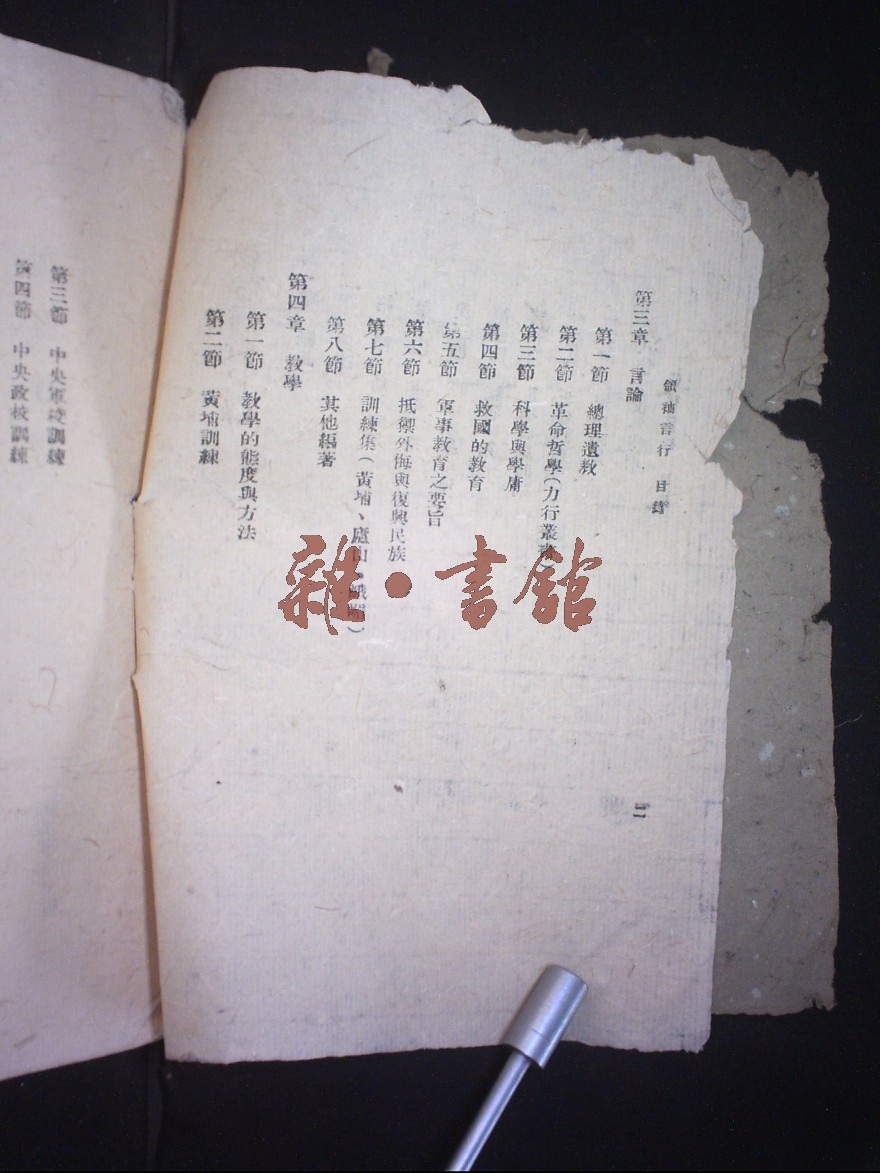 領袖言行 目錄
第三章 言論
第一節 總理遺教
第二節 革命哲學(力行叢書)
第三節 科學與學庸
第四節 救國的教育
第五節 軍事教育之要旨
第六節 抵禦外侮與復興民族
第七節 訓練集(黃埔、廬山、峨嵋)
第八節 其他編著
第四章 教學
第一節 教學的態度與方法
第二節 黃埔訓練
二
第三節 中央軍校訓練
第四節 中央政校訓練
雜·書館